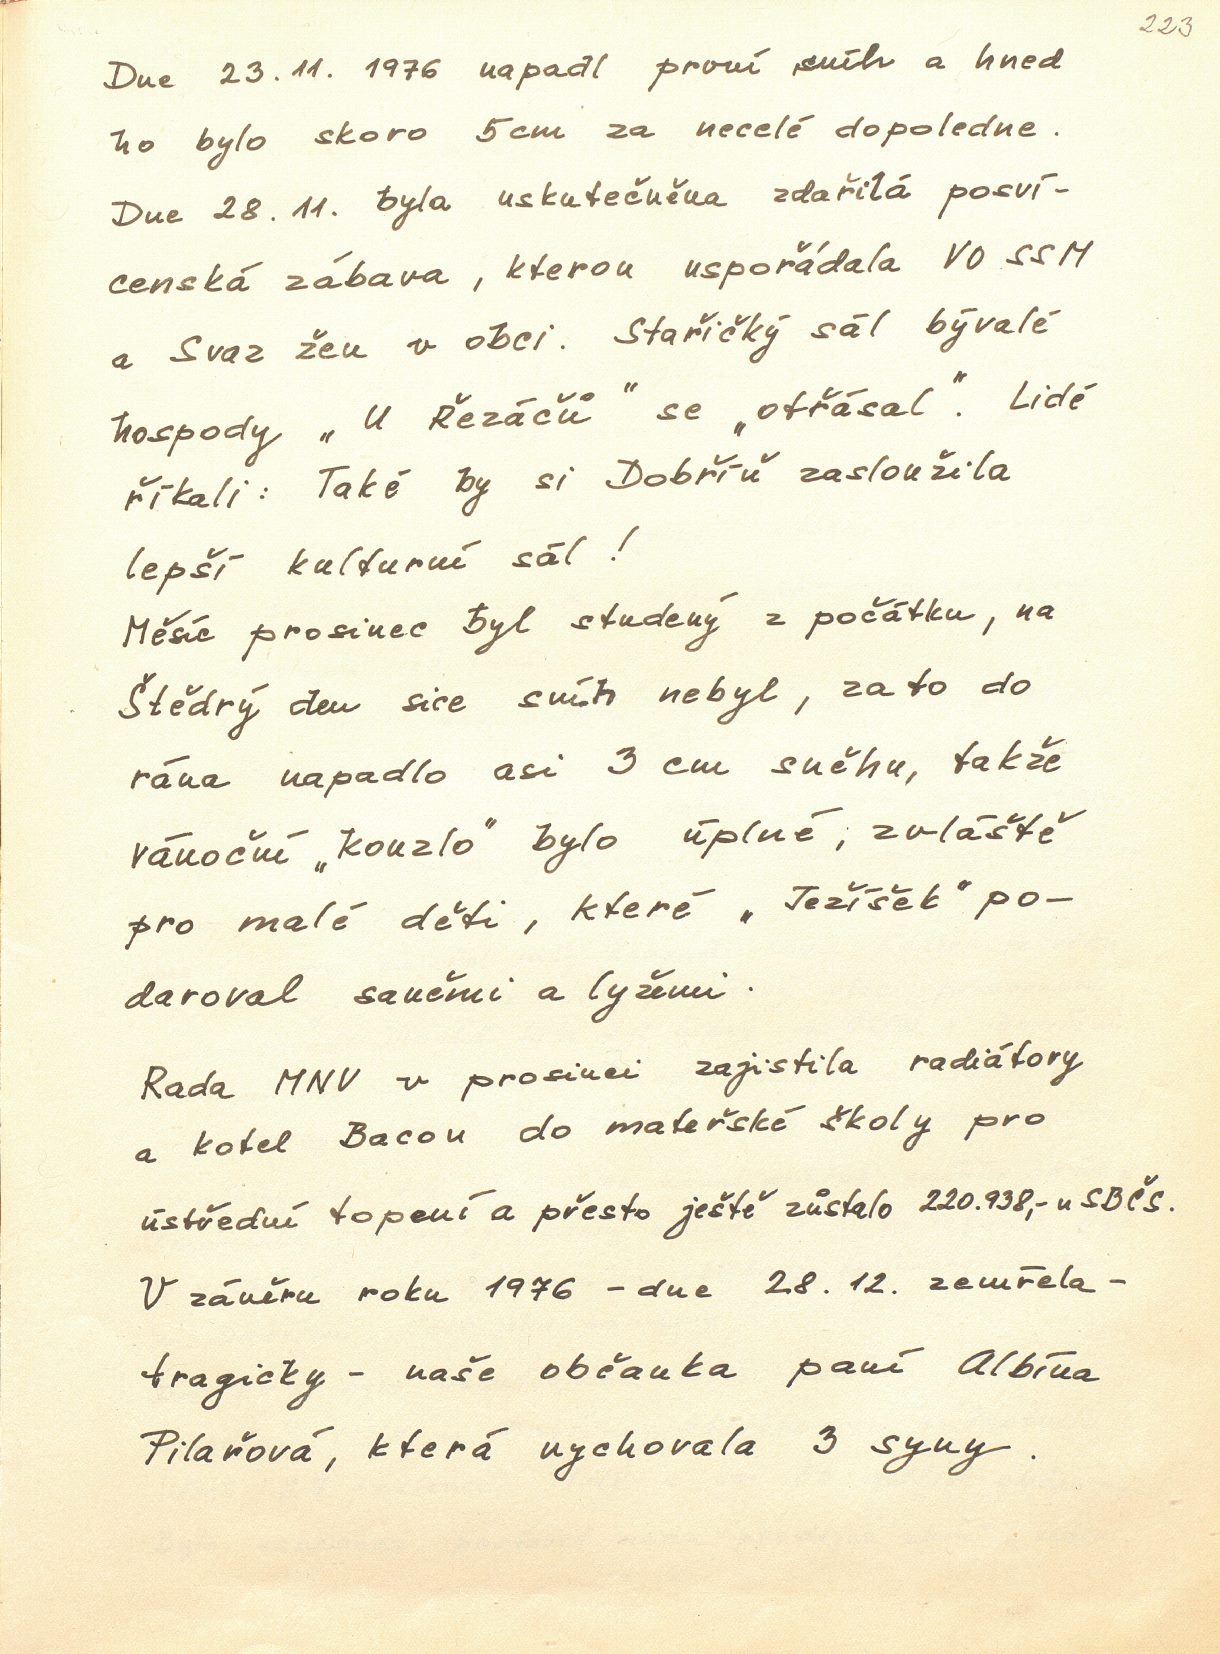 223
Dne 23.11. 1976 napadl první sníh a hned
ho bylo skoro 5cm za necelé dopoledne.
Dne 28.11. byla uskutečněna zdařilá posví-
censká zábava, kterou uspořádala VO SSM
a Svaz žen v obci. Stařičký sál bývalé
hospody „U Řezáčů" se „otřásal". Lidé
říkali: Také by si Dobříň zasloužila
lepší kulturní sál!
Měsíc prosinec byl studený z počátku, na
Štědrý den sice sníh nebyl, zato do
rána napadlo asi 3 cm sněhu, takže
vánoční „kouzlo" bylo úplné, zvláště
pro malé děti, které „Ježíšek" po-
daroval saněmi a lyžemi.
Rada MNV v prosinci zajistila radiátory
a kotel Bacon do mateřské školy pro
ústřední topení a přesto ještě zůstalo 220.938,- u SBČS.
V závěru roku 1976 - dne 28. 12. zemřela -
tragicky - naše občanka paní Albína
Pilařová, která vychovala 3 syny.